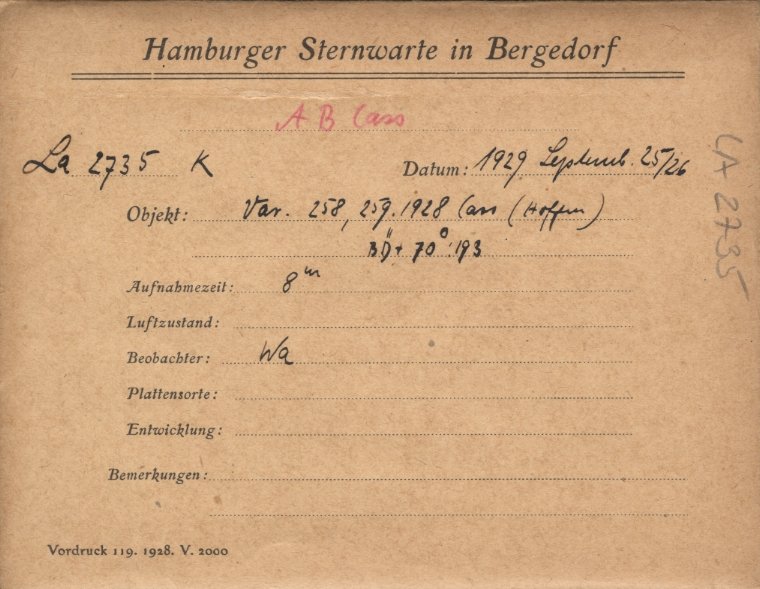 Hamburger Sternwarte in Bergedorf
AB Cass
La 2735 K
Datum: 1929 Septemb. 25/26
Objekt: Var. 258, 259.1928 Cass (Hoffm)
BD + 70° 193
Aufnahmezeit: 8m
Luftzustand:
Beobachter: Wa
Plattensorte:
Entwicklung:
Bemerkungen:
Vordruck 119. 1928. V. 2000
LA 2735